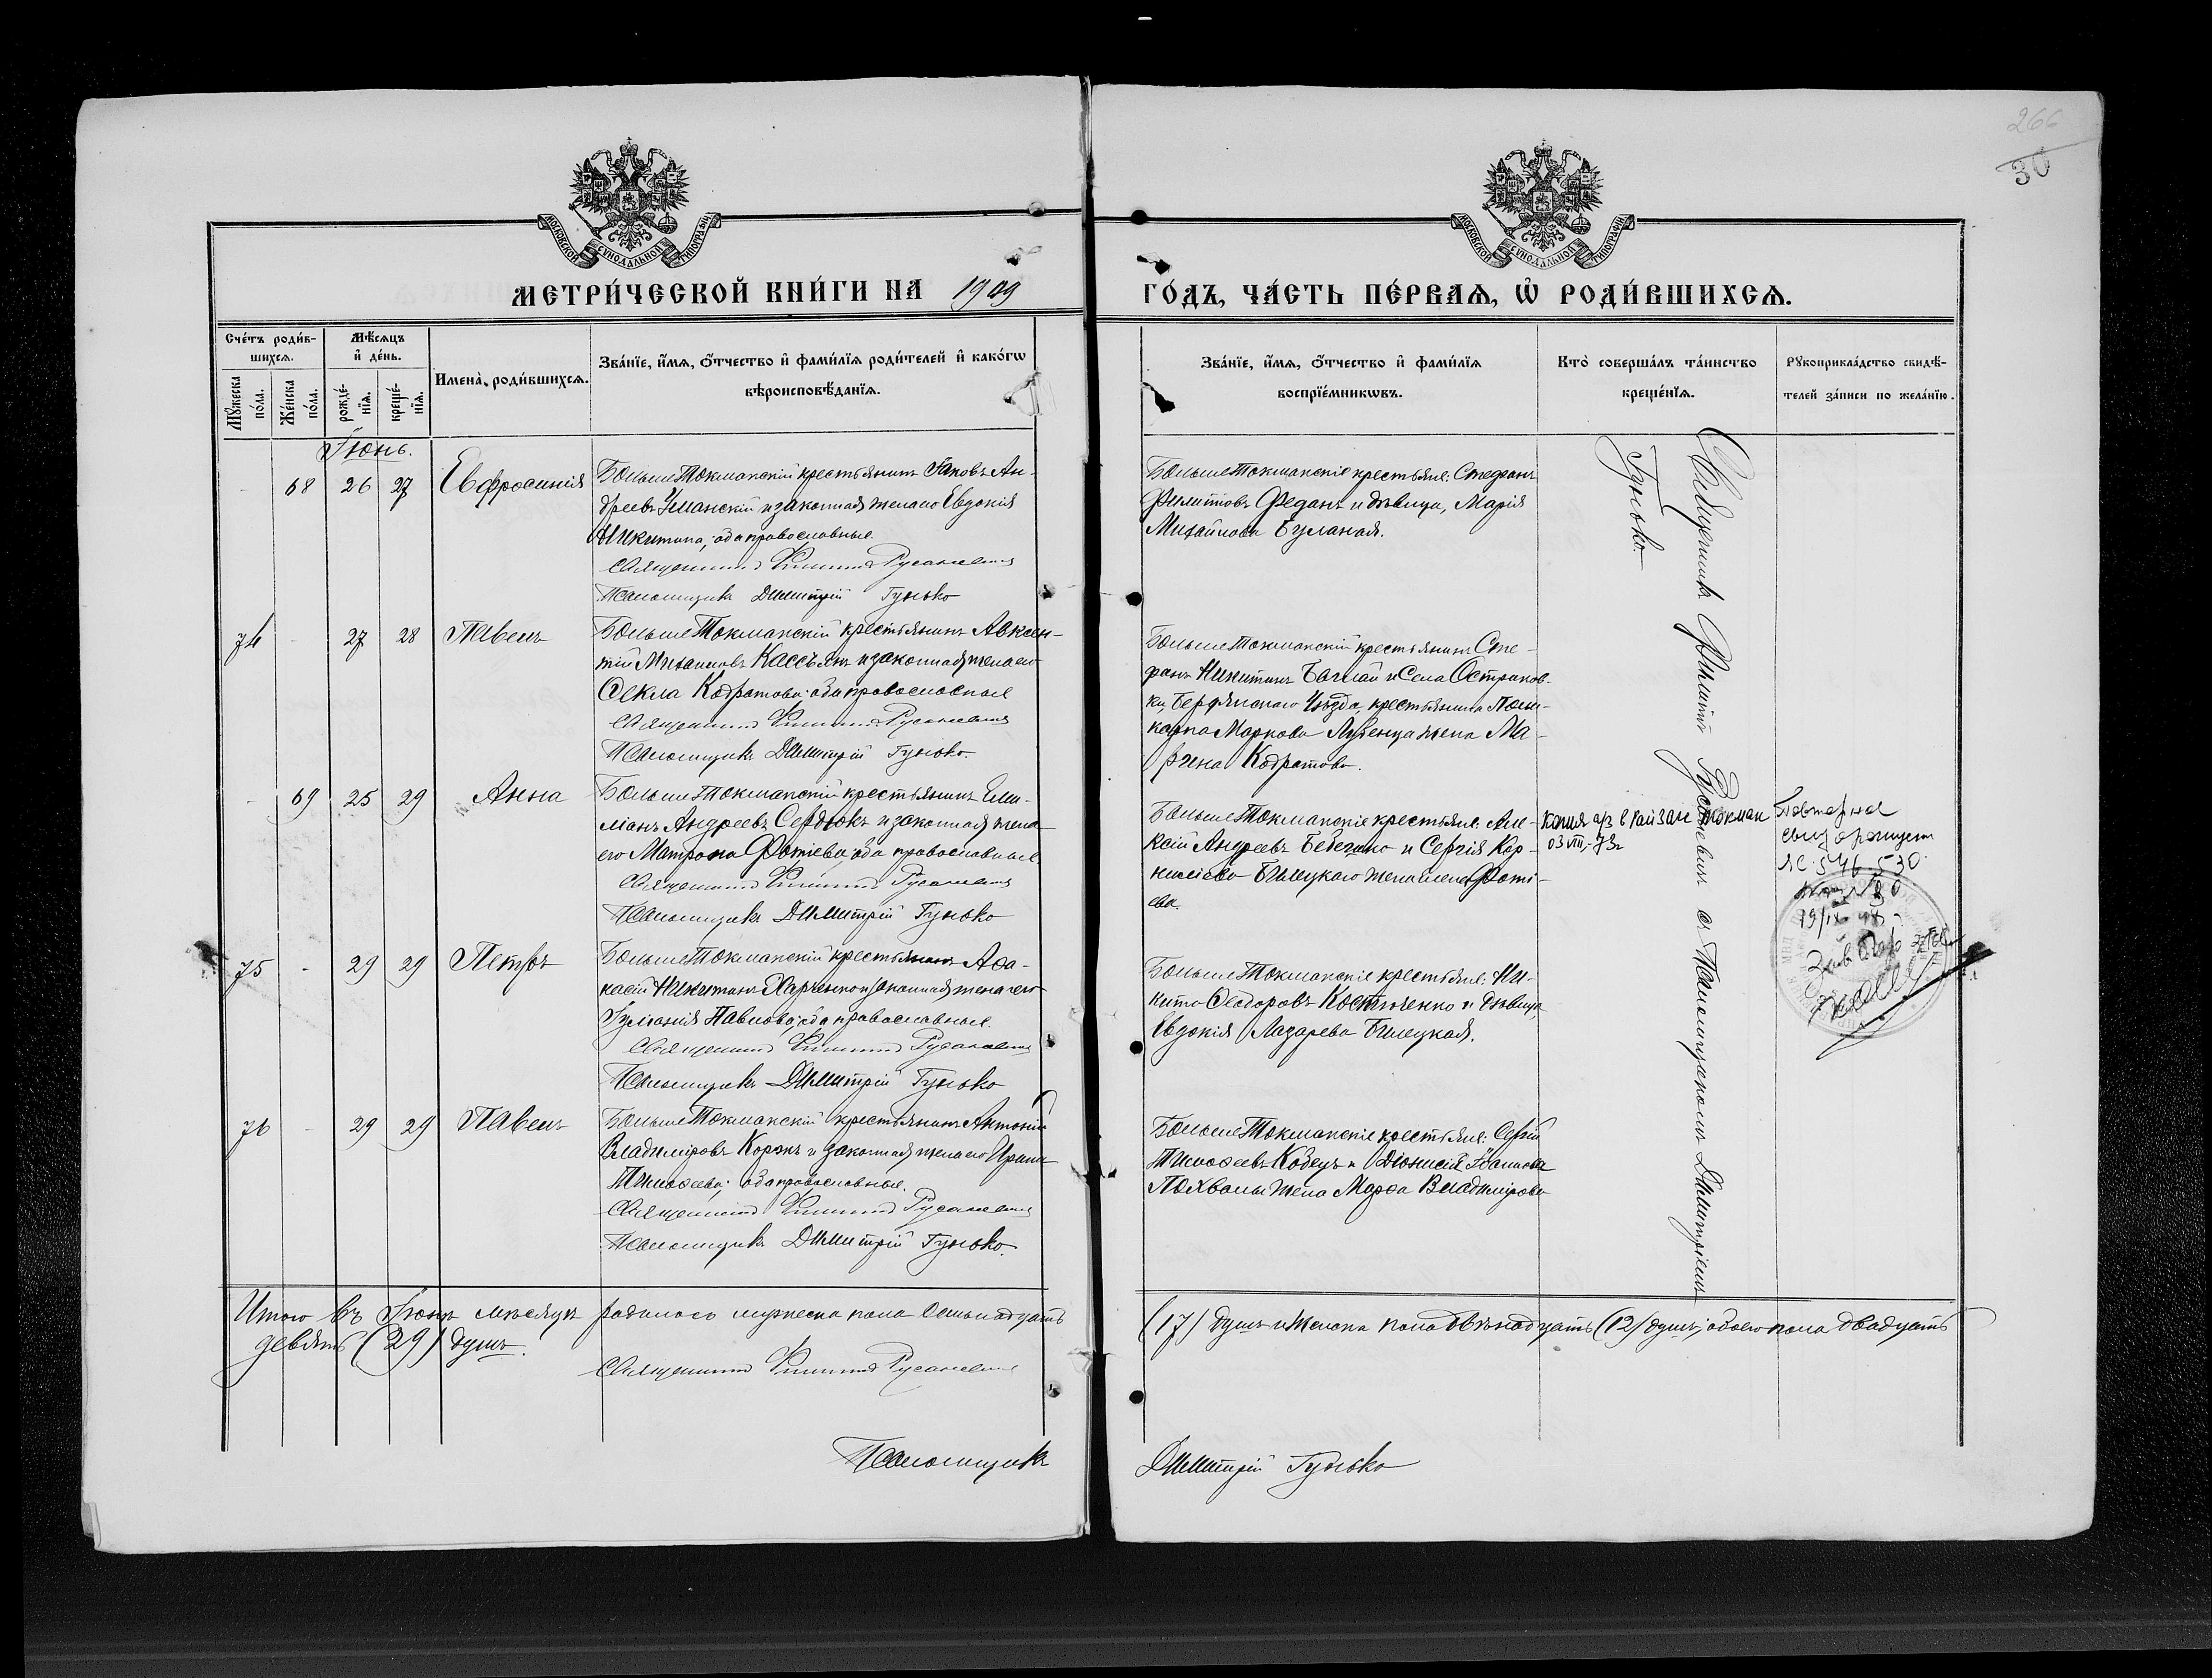 266
30
МОСКОВСКОЙ СѴНОДАЛЬНОЙ ТИПОГРАФІИ
МОСКОВСКОЙ СѴНОДАЛЬНОЙ ТИПОГРАФІИ
МЕТРИ́ЧЕСКОЙ КНИ́ГИ НА 1909
ГО́ДЪ, ЧА́СТЬ ПЕ́РВАѦ, Ѡ҆ РОДИ́ВШИХСѦ.
Сче́тъ роди́вшихсѧ.
Мꙋ́жеска по́ла.
Же́нска по́ла.
Мѣ́сѧцъ и҆ де́нь.
рожде́нїѧ.
креще́нїѧ.
Имена̀ роди́вшихсѧ.
Зва́нїе, и҆́мѧ, ѻ҆́тчество и҆ фами́лїѧ роди́телей и҆ како́гѡ
вѣроисповѣ́данїѧ.
Зва́нїе, и҆́мѧ, ѻ҆́тчество и҆ фами́лїѧ
воспрїе́мникѡвъ.
Кто̀ соверша́лъ та́инство
креще́нїѧ.
Рꙋкоприкла́дство свидѣ́-
телей за́писи по жела́нїю.
Іюнь.
- 68 26 27 Евфросинія
Больше Токмакскій крестьянинъ Іаковъ Ан-
дреевъ Уманскій и законная жена его Евдокія
Никитина; оба православные.
Священникъ Филиппъ Русаневичъ
Псаломщикъ Димитрій Гунько
Больше Токмакскіе крестьяне: Стефанъ
Филипповъ Феданъ и дѣвица, Марія
Михайлова Буланая.
74 - 27 28 Павелъ
Больше Токмакскій крестьянинъ Авксен-
тій Михаиловъ Кассьянъ и законная жена его
Ѳекла Кодратова; оба православные
Священникъ Филиппъ Русаневичъ
Псаломщикъ Димитрій Гунько.
Больше Токмакскій крестьянинъ Сте-
фанъ Никитинъ Баглай и Села Остриков-
ки, Бердянскаго Уѣзда, крестьянина Поли-
карпа Маркова Лубенца жена Ма-
рѳена Кодратова.
- 69 25 29 Анна
Больше Токмакскій крестьянинъ Еми-
ліанъ Андреевъ Сердюкъ и законная жена
его Матрона Фотіева; оба православные.
Священникъ Филиппъ Русаневичъ
Псаломщикъ Димитрій Гунько
Больше Токмакскіе крестьяне: Але-
ксій Андреевъ Бебешко и Сергія Кор-
ниліева Билецкаго жена Елена Фоті-
ева.
копия а/з в Райзагс Токмак
03 VIII-73г
Повторное
свид.
№ 546530
19/IX-48
75 - 29 29 Петръ
Больше Токмакскій крестьянинъ Ака-
кій Никитинъ Харченко и законная жена его
Іуліанія Павлова; оба православные.
Священникъ Филиппъ Русаневичъ
Псаломщикъ Димитрій Гунько
Больше Токмакскіе крестьяне: Ни-
кита Ѳеодоровъ Костюченко и дѣвица
Евдокія Лазарева Билецкая.
76 - 29 29 Павелъ
Больше Токмакскій крестьянинъ Антоній
Владиміровъ Корокъ и законная жена его Ирина
Тимоѳеева; оба православные.
Священникъ Филиппъ Русаневичъ
Псаломщикъ Димитрій Гунько.
Больше Токмакскіе крестьяне: Сергій
Тимоѳеевъ Кобецъ и Діонисія Іоаннова
Похвалы жена Марѳа Владимірова
Священникъ Филиппъ Русаневичъ съ Псаломщикомъ Димитріемъ
Гунько.
Итого въ Іюнѣ мѣсяцѣ родилось мужеска пола семьнадцать
(17) душъ и женска пола двѣнадцать (12) душъ; обоего пола двадцать
девять (29) душъ.
Священникъ Филиппъ Русаневичъ
Псаломщикъ
Димитрій Гунько